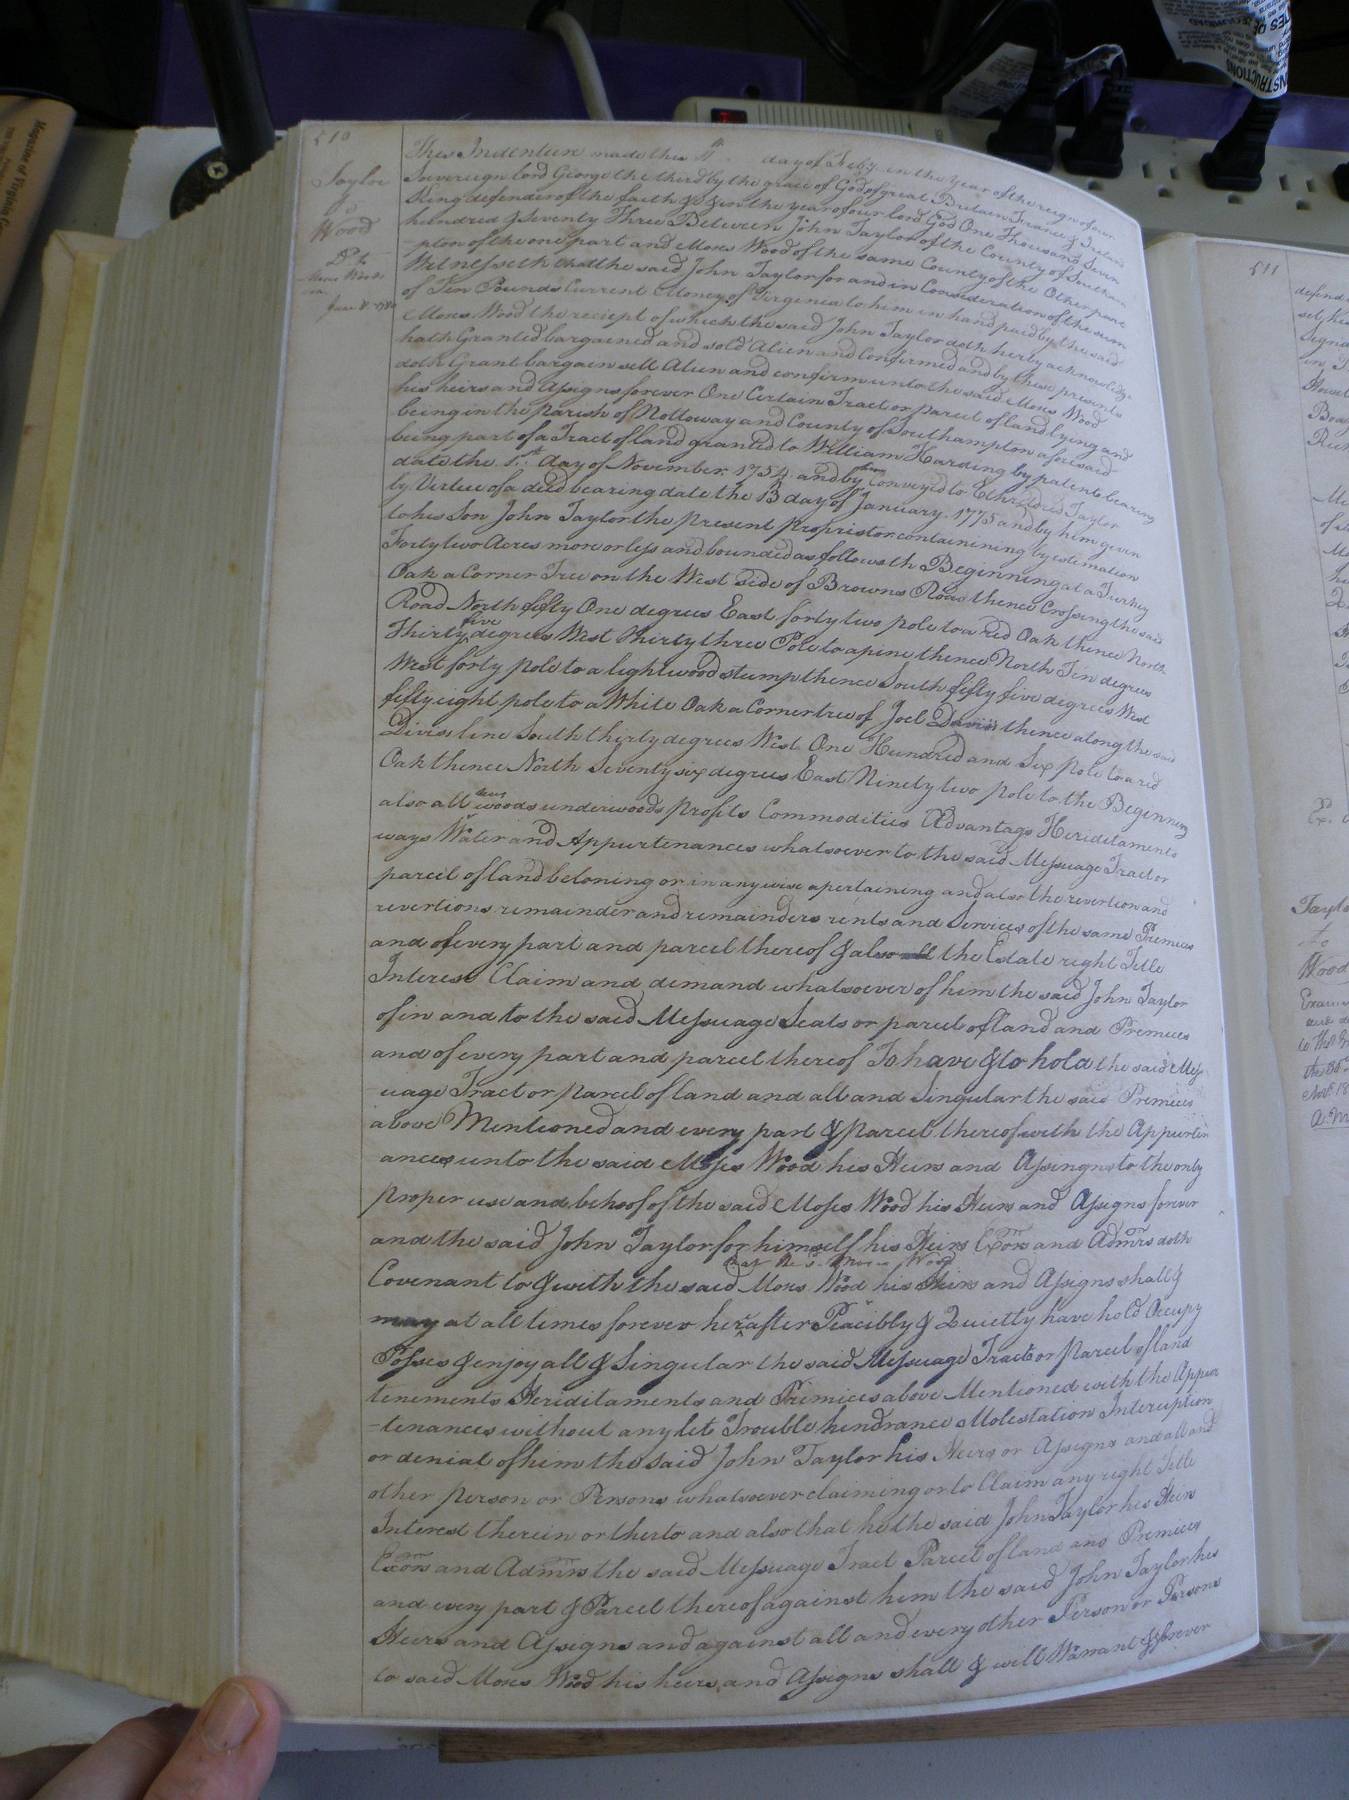 510
Taylor
to
Wood
This Indenture made this day of Feby in the year of the reign of our
Sovereign lord George the third by the grace of God of great Britain France & Ireland
King defender of the faith & & in the year of our lord God One Thousand Seven
hundred & Seventy Three Between John Taylor of the County of Southam
-pton of the one part and Moses Wood of the same County of the Other part
Witnesseth that the said John Taylor for and in Consideration of the sum
of Ten Pounds Current Money of Virginia to him in hand paid by the said
Moses Wood the reciept of which the said John Taylor doth herby acknowledge
hath Granted bargained and sold Alien and Confirmed and by these presents
doth Grant bargain sell Alien and confirm unto the said Moses Wood
his heirs and Assigns forever One Certain Tract or parcel of land lying and
being in the parish of Nottoway and County of Southampton aforesaid
being part of a Tract of land granted to William Harding by patent bearing
date the day of November 1754 and by him Conveyed to Ethreldred Taylor
by Vertue of a deed bearing date the 13 day of January 1775 and by him given
to his Son John Taylor the present propristor containining by estimation
Forty two Acres more or less and bounded as followeth Beginning at a Turkey
Oak a Corner Tree on the West side of Browns Road thence Crossing the said
Road North fifty One degrees East forty two pole to a red Oak thence North
Thirty five degrees West thirty three Pole to a pine thence North Ten degrees
West forty pole to a lightwood stump thence South fifty five degrees West
fifty eight pole to a White Oak a Corner tree of Joel Davis thence along the said
Daviss line South thirty degrees West One Hundred and Six pole to a red
Oak thence North Seventy six degrees East Ninety two pole to the Beginning
also all woods underwoods profits Commodities Advantags Heriditaments
ways Water and Appurtenances whatsoever to the said Messuage Tract or
parcel of land beloning or in any wise apertaining and also the revertion and
revertions remainder and remainders rents and Services of the same Premices
and of every part and parcel thereof & also all the Estate right Title
Interest Claim and demand whatsoever of him the said John Taylor
of in and to the said Messuage Seats or parcel of land and Premices
and of every part and parcel thereof To have & to hold the said Mess
uage Tract or Parcel of land and all and Singular the said Premices
above Mentioned and every part & Parcel thereof with the Appurtin
ances unto the said Moses Wood his Heirs and Assingns to the only
proper use and behoof of the said Moses Wood his Heirs and Assigns forever
and the said John Taylor for himself his Heirs Exors and Admrs doth
Covenant to & with the said Moses Wood his Heirs and Assigns shall &
may at all times forever herafter Peacibly & Quietly have hold Occupy
Posses & enjoy all & Singular the said Messuage Tract or Parcel of land
tenements Heriditaments and Primices above Mentioned with the Appur
-tenances without any let Trouble hendrance Molestation Interuption
or denial of him the said John Taylor his Heirs or Assigns and all and
other person or Persons whatsoever claiming or to Claim any right Title
Interest therein or therto and also that he the said John Taylor his Heirs
Exors and Admrs the said Messuage Tract Parcel of land and Premices
and every part & Parcel thereof against him the said John Taylor his
Heirs and Assigns and against all and every other Person or Persons
to said Moses Wood his heirs and Assigns shall & will Warrant & forever
511
Taylo
to
Wood